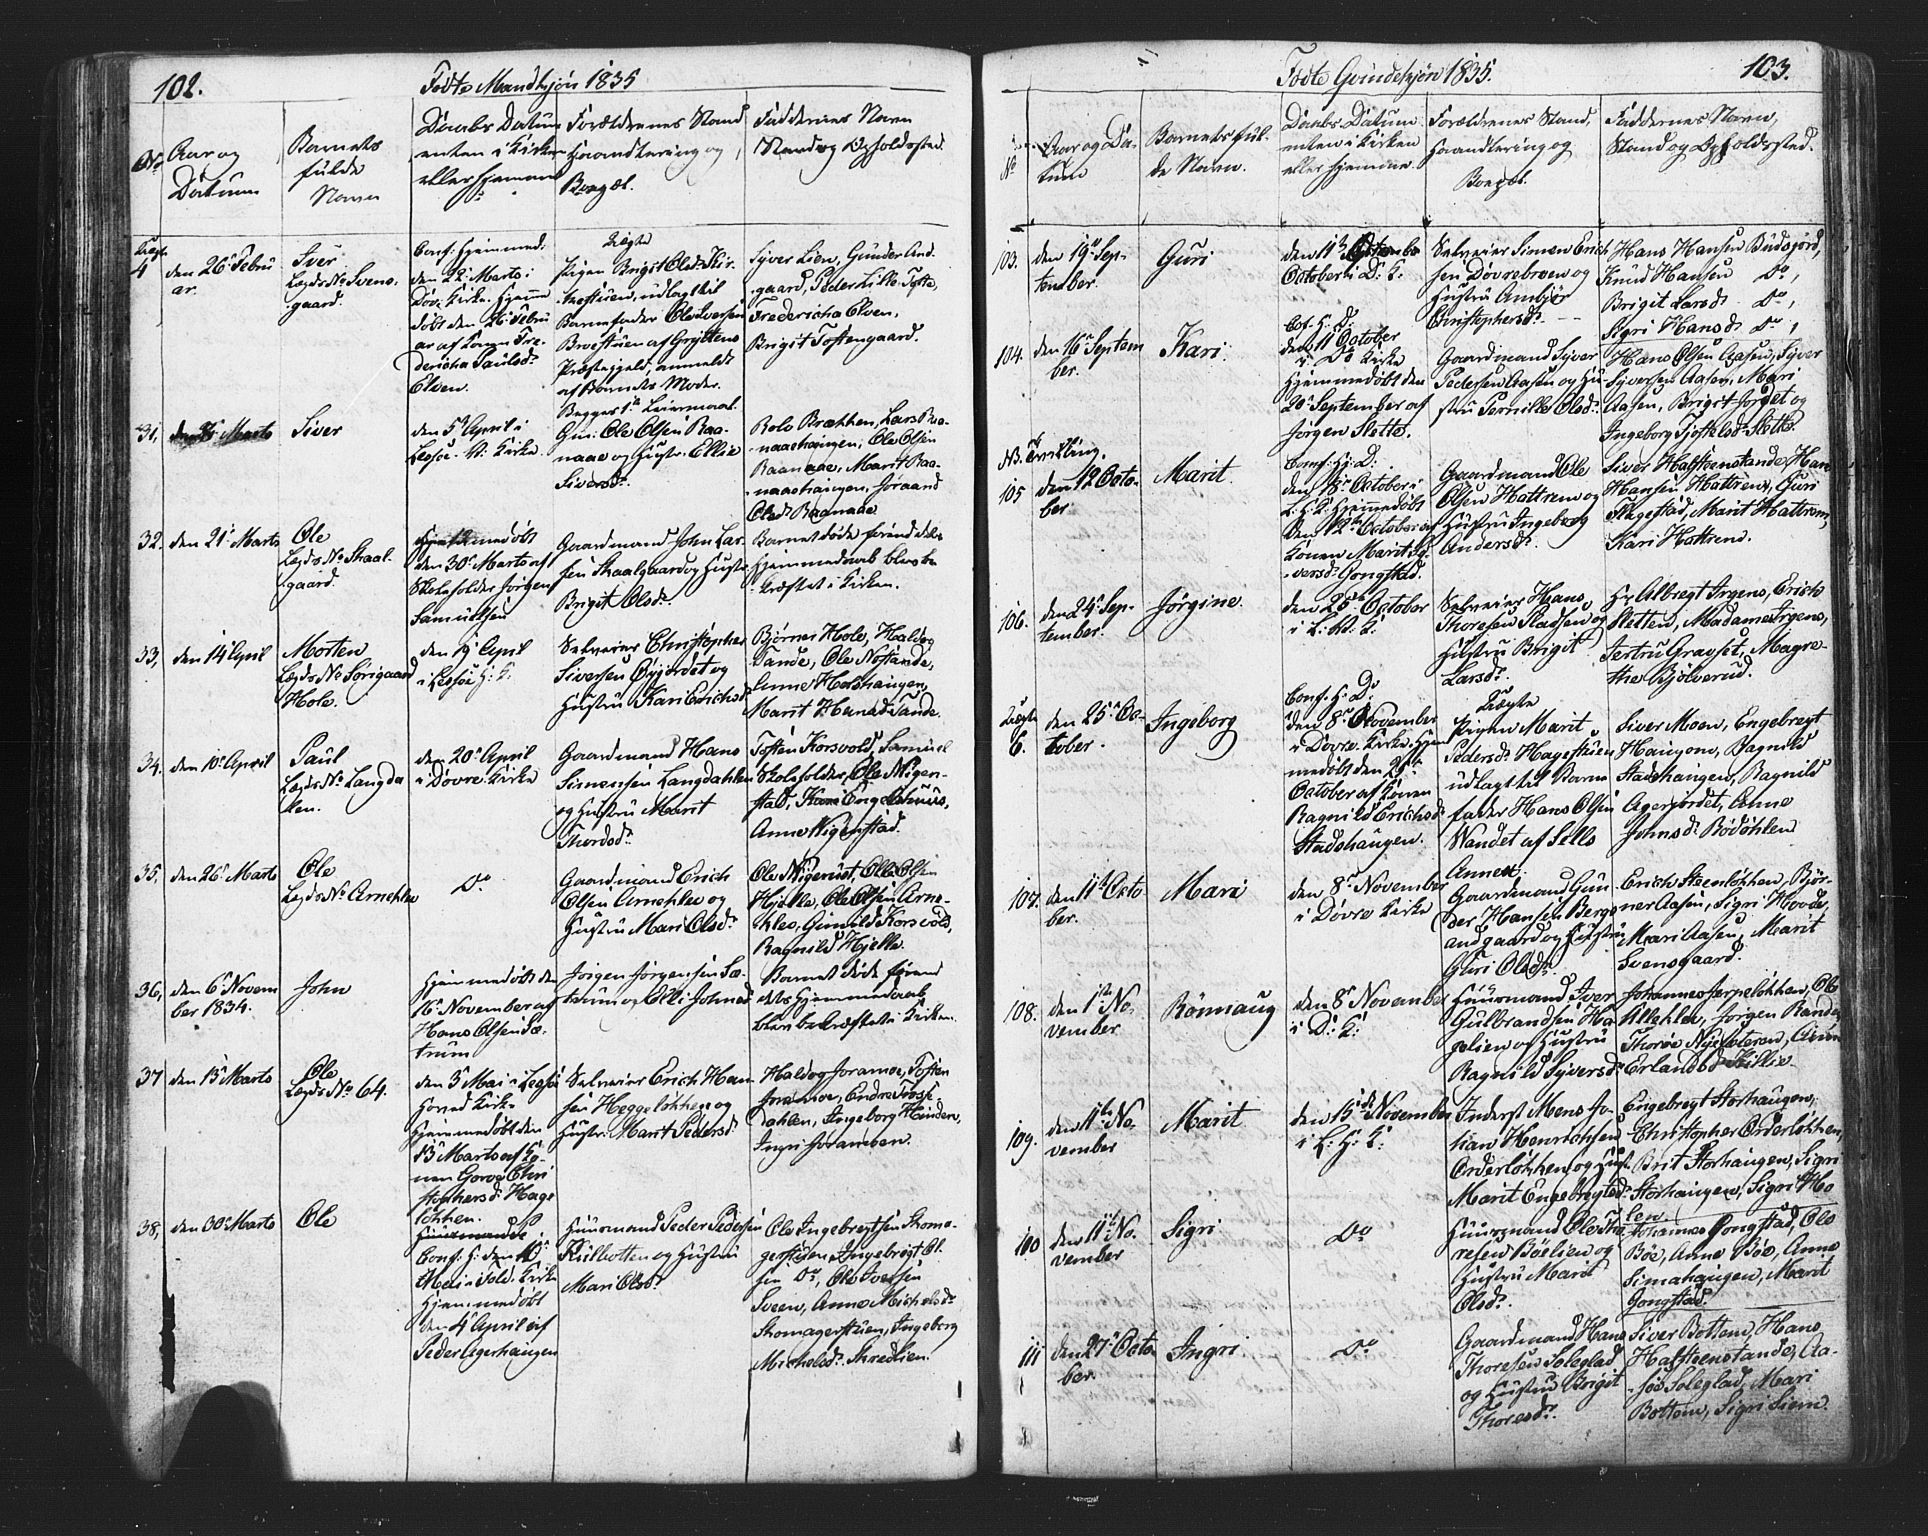 102.
Födte Mandkjön 1835
No
Aar og
Datum
Barnets
fulde
Navn
Daabs Datum
enten i Kirken
eller hjemme
Forældrenes Stand
Haandtering og
Bopæl.
Faddernes Navn
Stand og Opholdssted.
Uægte
4
den 26 Febru
ar.
Sver
Lægds No Svens-
gaard.
Conf: hjemmed:
den 22 Marts i
Dov. Kirke. Hjem
döbt den 26 Febru
ar af Konen Fre-
dericha Paulsdr
Elven.
Uægte
Pigen Brigit Olsdr Kir-
kestuen, udlagt til
Barnefader Ole Iversen
Broestuen af Gryttens
Præstegjeld, anmeldt
af Barnets Moder.
Begges 1ste Leiermaal.
Syver Lien, Gunder And-
gaard, Peder Lille Tofte,
Fredericha Elven,
Brigit Toftengaard.
31,
Marts
Siver
den 5 April i
Lessöe V. Kirke.
Gm: Ole Olsen Raa-
naae og Hustr. Ellie
Siversdr
Rolv Brækken, Lars Raa-
naaehaugen, Ole Olsen
Raanaae, Marit Raa-
naaehaugen, Joraand
Olsdr Raanaae
32.
den 21 Marts
Ole
Lægds No Skaal-
gaard.
Hjemmedöbt
den 30 Marts af
Skoleholder Jörgen
Samuelsen
Gaardmand John Lar-
sen Skaalgaard og Hustr.
Brigit Olsdr
Barnet döde forend dets
Hjemmedaab blev be-
kræftet i Kirken.
33,
den 14 April
Morten
Lægds No Sörigaard
Hole.
den 19 April
i Lessöe H: K.
Selveier Christopher
Siversen Öygjordet og
Hustru Kari Erichsdr
Björner Hole, Haldog
Sande, Ole Nostande,
Anne Holshaugen,
Marit Sande.
34.
den 10 April
Paul
Lægds No Langda
len.
den 20 April
i Dovre Kirke
Gaardmand Hans
Simensen Langdahlen
og Hustru Marit
Thordsdr
Tosten Korsvold, Samuel
Skoleholder, Ole Nigen-
stad, Kari Engelshuus,
Anne Nigenstad.
35,
den 26 Marts
Ole
Lægds No Arnekleiv
Do
Gaardmand Erich
Olsen Arnekleiv og
Hustru Mari Olsdr
Ole Nigerust, Ole Olsen
Hjelle, Ole Olsen Arne-
klev, Gunild Korsvold,
Ragnild Hjelle.
36,
den 6 Novem
ber 1834.
John
Hjemmedöbt den
16 November af
Hans Olsen Sæ-
trum
Jörgen Jörgensen Sæ-
trum og Elli Johnsdr
Barnet döde forend
dets Hjemmedaab
blev bekræftet i Kirken.
37
den 13 Marts
Ole
Lægds No 64.
den 3 Mai i Lessöe
Hoved Kirke
Hjemmedöbt den
13 Marts af Ko-
nen Goroe Chri
stophersdr Hage
lökken.
Selveier Erich Han
sen Heggelökken og
Hustr. Marit Pedersdr
Haldog Joramoe, Tosten
Joramoe, Endre Torse-
dahlen, Ingeborg Heinden,
Ingri Joramoen.
38,
den 30 Marts
Ole
Conf: H: den 10
Mai i Kirke
Hjemmedöbt
den 4 April af
Peder Agerhaugen
Huusmand Peder Pedersen
Kulbotten og Hustru
Mari Olsdr
Ole Ingebregtsen Skoma-
gerstuen, Ingebregt Ol-
sen Do, Ole Iversen
Sveen, Anne Michelsdr
Skomagerstuen, Ingeborg
Michelsdr Skredlien.
Födte Qvindekjön 1835.
103.
No
Aar og Da-
tum
Barnets ful-
de Navn.
Daabs Datum
enten i Kirken
eller hjemme.
Forældrenes Stand,
Haandtering og
Bopæl.
Faddernes Navn,
Stand og Opholdssted.
103.
den 19 Sep-
tember.
Guri
den 11te
October i D: K:
Selveier Simen Erich
sen Dovrebroen og
Hustru Ambjör
Christophersdr
Hans Hansen Budsjord,
Knud Hansen Do,
Brigit Larsdr Do,
Sigri Hansdr Do,
104.
den 16 Septem
ber.
Kari.
Cof. H: D:
den 11 October
i Do Kirke
Hjemmedöbt den
20 September af
Jörgen Slette.
Gaardmand Syver
Pedersen Aasen og Hu
stru Pernille Olsdr
Hans Olsen Aasen, Syver
Syversen Aasen, Mari
Aasen, Brigit Jordet og
Ingeborg Tjostelsdr Slette.
NB. Tvilling.
105
den 12 Octo-
ber
Marit.
Conf: Hj: D:
den 18 October i
L: H: K: Hjemmedöbt
den 12te October af
Konen Marit Sy-
versdr Gongstad.
Gaardmand Ole
Olsen Hattrem og
Hustru Ingeborg
Andersdr
Siver Halfsteenstande, Han
Hansen Hattrem, Guri
Flagestad, Marit Hattrem,
Kari Hattrem.
106.
den 24 Sep-
tember.
Jörgine.
den 25 October
i L: V: K:
Selveier Hans
Thoresen Stadsen og
Hustru Brigit
Larsdr
Hr Albregt Irgens, Erich
Sletten, Madame Irgens,
Jertru Gravset, Magre-
the Bjölverud.
Uægte
6.
den 25 Oc-
tober.
Ingeborg
Conf. H: D:
den 8 November
i Dovre Kirke. Hjem
medöbt den 25
October af Konen
Ragnild Erichsdr
Stadshaugen.
Uægte
Pigen Marit
Pedersdr Hagestuen
udlagt til Barne
fader Hans Olsen
Wandet af Sells
Annex.
Siver Moen, Engebregt
Haugom, Ragnild
Stadshaugen, Ragnild
Agerjordet, Anne
Johnsdr Bödöhlen
107.
den 11te Octo-
ber.
Mari
den 8 November
i Dovre Kirke
Gaardmand Gun
der Hansen Bergs
andgaard og Hustru
Guri Olsdr
Erich Steenlökken, Björ-
ner Aasen, Sigri Hovde,
Mari Aasen, Marit
Svensgaard.
108.
den 1ste No-
vember
Rönnaug
den 8 November
i D: K:
Huusmand Iver
Gulbrandsen Ha-
gelien og Hustru
Ragnild Syversdr
Johannes Jerpelökken, Ole
Killehlev, Jorgen Rande,
Thorөe Nyesteteren, Anne
Erlandsdr Killie.
109.
den 11te No-
vember
Marit
den 15de November
i L: H: K:
Inderst Mens Jo-
han Henrichsen
Orderlökken og Hust
Marit Engebregtsdr
Engebregt Storhaugen,
Christopher Orderlökken,
Brit Storhaugen, Sigri
Storhaugen, Sigri Ho
len
110
den 11te No-
vember
Sigri
Do
Huusmand Ole Tho-
resen Böelien og
Hustru Marit
Olsdr
Johannes Gongstad, Ole
Böe, Anne Böe, Anne
Simahaugen, Marit
Gongstad.
111
den 27 Octo-
ber.
Ingri
Do
Gaardmand Hans
Thoresen Soleglad
og Hustru Brigit
Thoresdr
Siver Bottem, Hans
Halfsteenstande, Aa-
soe Soleglad, Mari
Bottem, Sigri Siem.